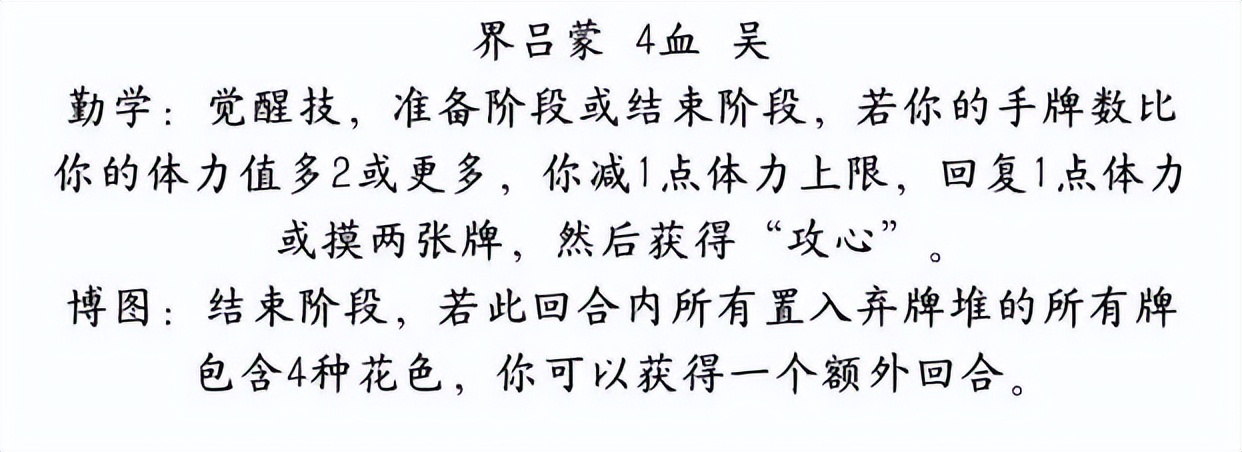 界吕蒙 4血 吴
勤学：觉醒技，准备阶段或结束阶段，若你的手牌数比
你的体力值多2或更多，你减1点体力上限，回复1点体力
或摸两张牌，然后获得“攻心”。
博图：结束阶段，若此回合内所有置入弃牌堆的所有牌
包含4种花色，你可以获得一个额外回合。